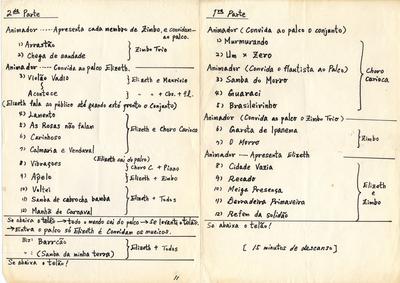 2ª Parte
Animador ..... Apresenta cada membro de Zimbo, e convidam- ao palco.
1) Arrastão
2) Chega de saudade
Zimbo Trio
Animador ..... Convida ao palco Elizeth.
3) Violão Vadio
Elizeth e Mauricio
Acontece
" " + Cbo. + Fl.
(Elizeth fala ao público até quando está pronto o Conjunto)
4) Lamento
5) As Rosas não falam
6) Carinhoso
7) Calmaria e Vendaval
Elizeth e Choro Carioca
(Elizeth sai do palco)
8) Vibrações
Choro C. + Piano
9) Apêlo
Elizeth + Zimbo
10) Voltei
11) Samba de cabrocha bamba
12) Manhã de Carnaval
Elizeth + Todos
Se abaixa o telão → todo o mundo sai do palco → se levanta o telão
→ Entra o palco só Elizeth e Convidam os musicos.
Bis) Barracão
" : (Samba da minha terra)
Elizeth + Todos
Se abaixa o telão!
11
1ª Parte
Animador (Convida ao palco o conjunto)
1) Murmurando
2) Um x Zero
Animador (Convida o flautista ao Palco)
3) Samba do Morro
4) Guaraci
5) Brasileirinho
Choro Carioca
Animador (Convida ao palco o Zimbo Trio)
6) Garota de Ipanema
7) O Morro
Zimbo
Animador --- Apresenta Elizeth
8) Cidade Vazia
9) Recado
10) Meiga Presença
11) Derradeira Primavera
12) Refém da solidão
Elizeth e Zimbo
Se abaixa o telão!
[ 15 minutos de descanso ]